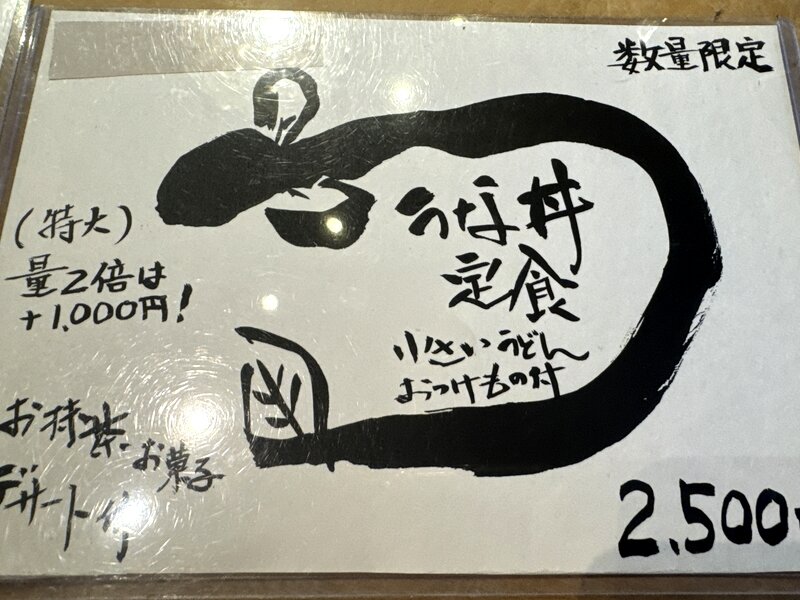 数量限定
うな丼
定食
小さいうどん
おつけもの付
(特大)
量2倍は
+1,000円!
お抹茶、お菓子
デザート付
2,500